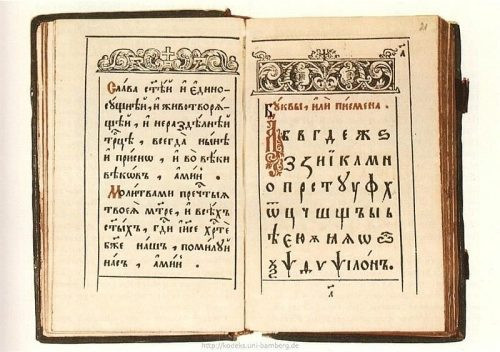 Сла́ва ст҃ѣ́й и҆ є҆дино-
сꙋ́щнѣй, и҆ животворѧ́-
щей, и҆ нераздѣ́лнѣй
трⷪ҇цѣ, всегда̀ ны́нѣ
и҆ при́снѡ, и҆ во вѣ́ки
вѣкѡ́въ, а҆ми́нь.
Моли́твами пречⷭ҇тыѧ
твоеѧ̀ мт҃ре, и҆ всѣ́хъ
ст҃ы́хъ, гдⷭ҇и і҆и҃се хрⷭ҇те
бж҃е на́шъ, поми́лꙋй
на́съ, а҆ми́нь.
21
Бꙋ́квы, и҆лѝ писмена̀.
А б в г д е ж ѕ
и ї к л м н
о п р с т ф х
ѿ ц ч ш щ ъ ы ь
ѣ є ю ѡ
ѯ ѱ
http://kodeks.uni-bamberg.de